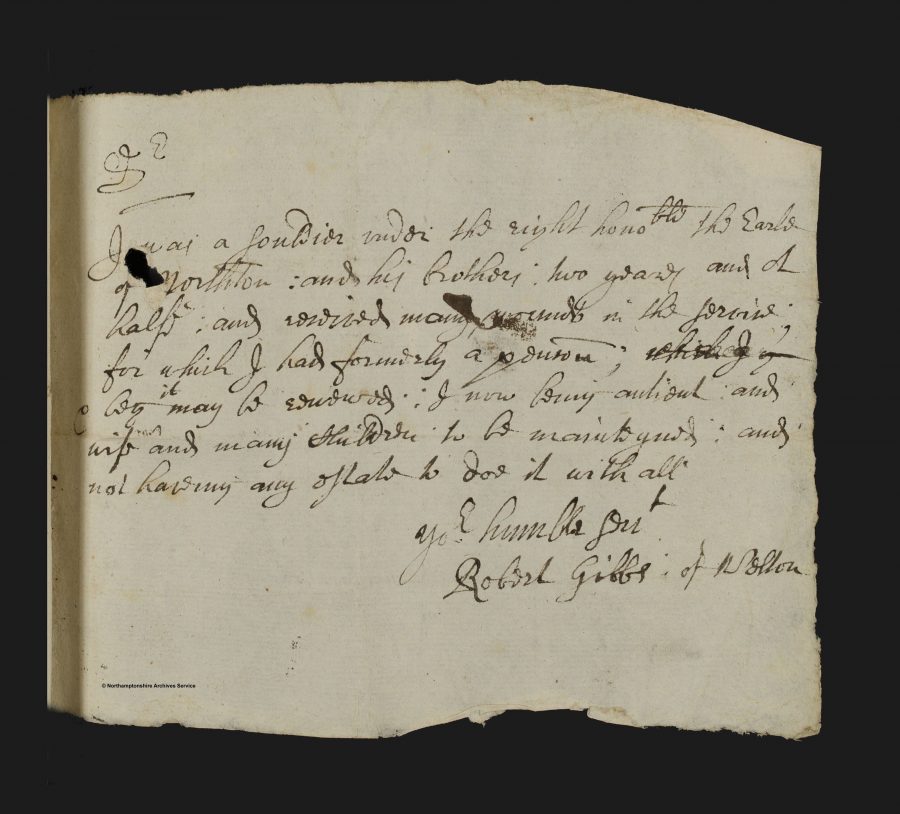 Sr
I was a souldier under the right honoble the Earle
of Northton : and his brothers : two yeares and A
halfe : and received many wounds in the service ;
for which I had formerly a penson ; which I
beg it may be renewed : I now being antient and
wife and many Children to be mainteyned : and
not haveing any estate to doe it with all
yor humble servt
Robert Gibbs : of Welton
© Northamptonshire Archives Service